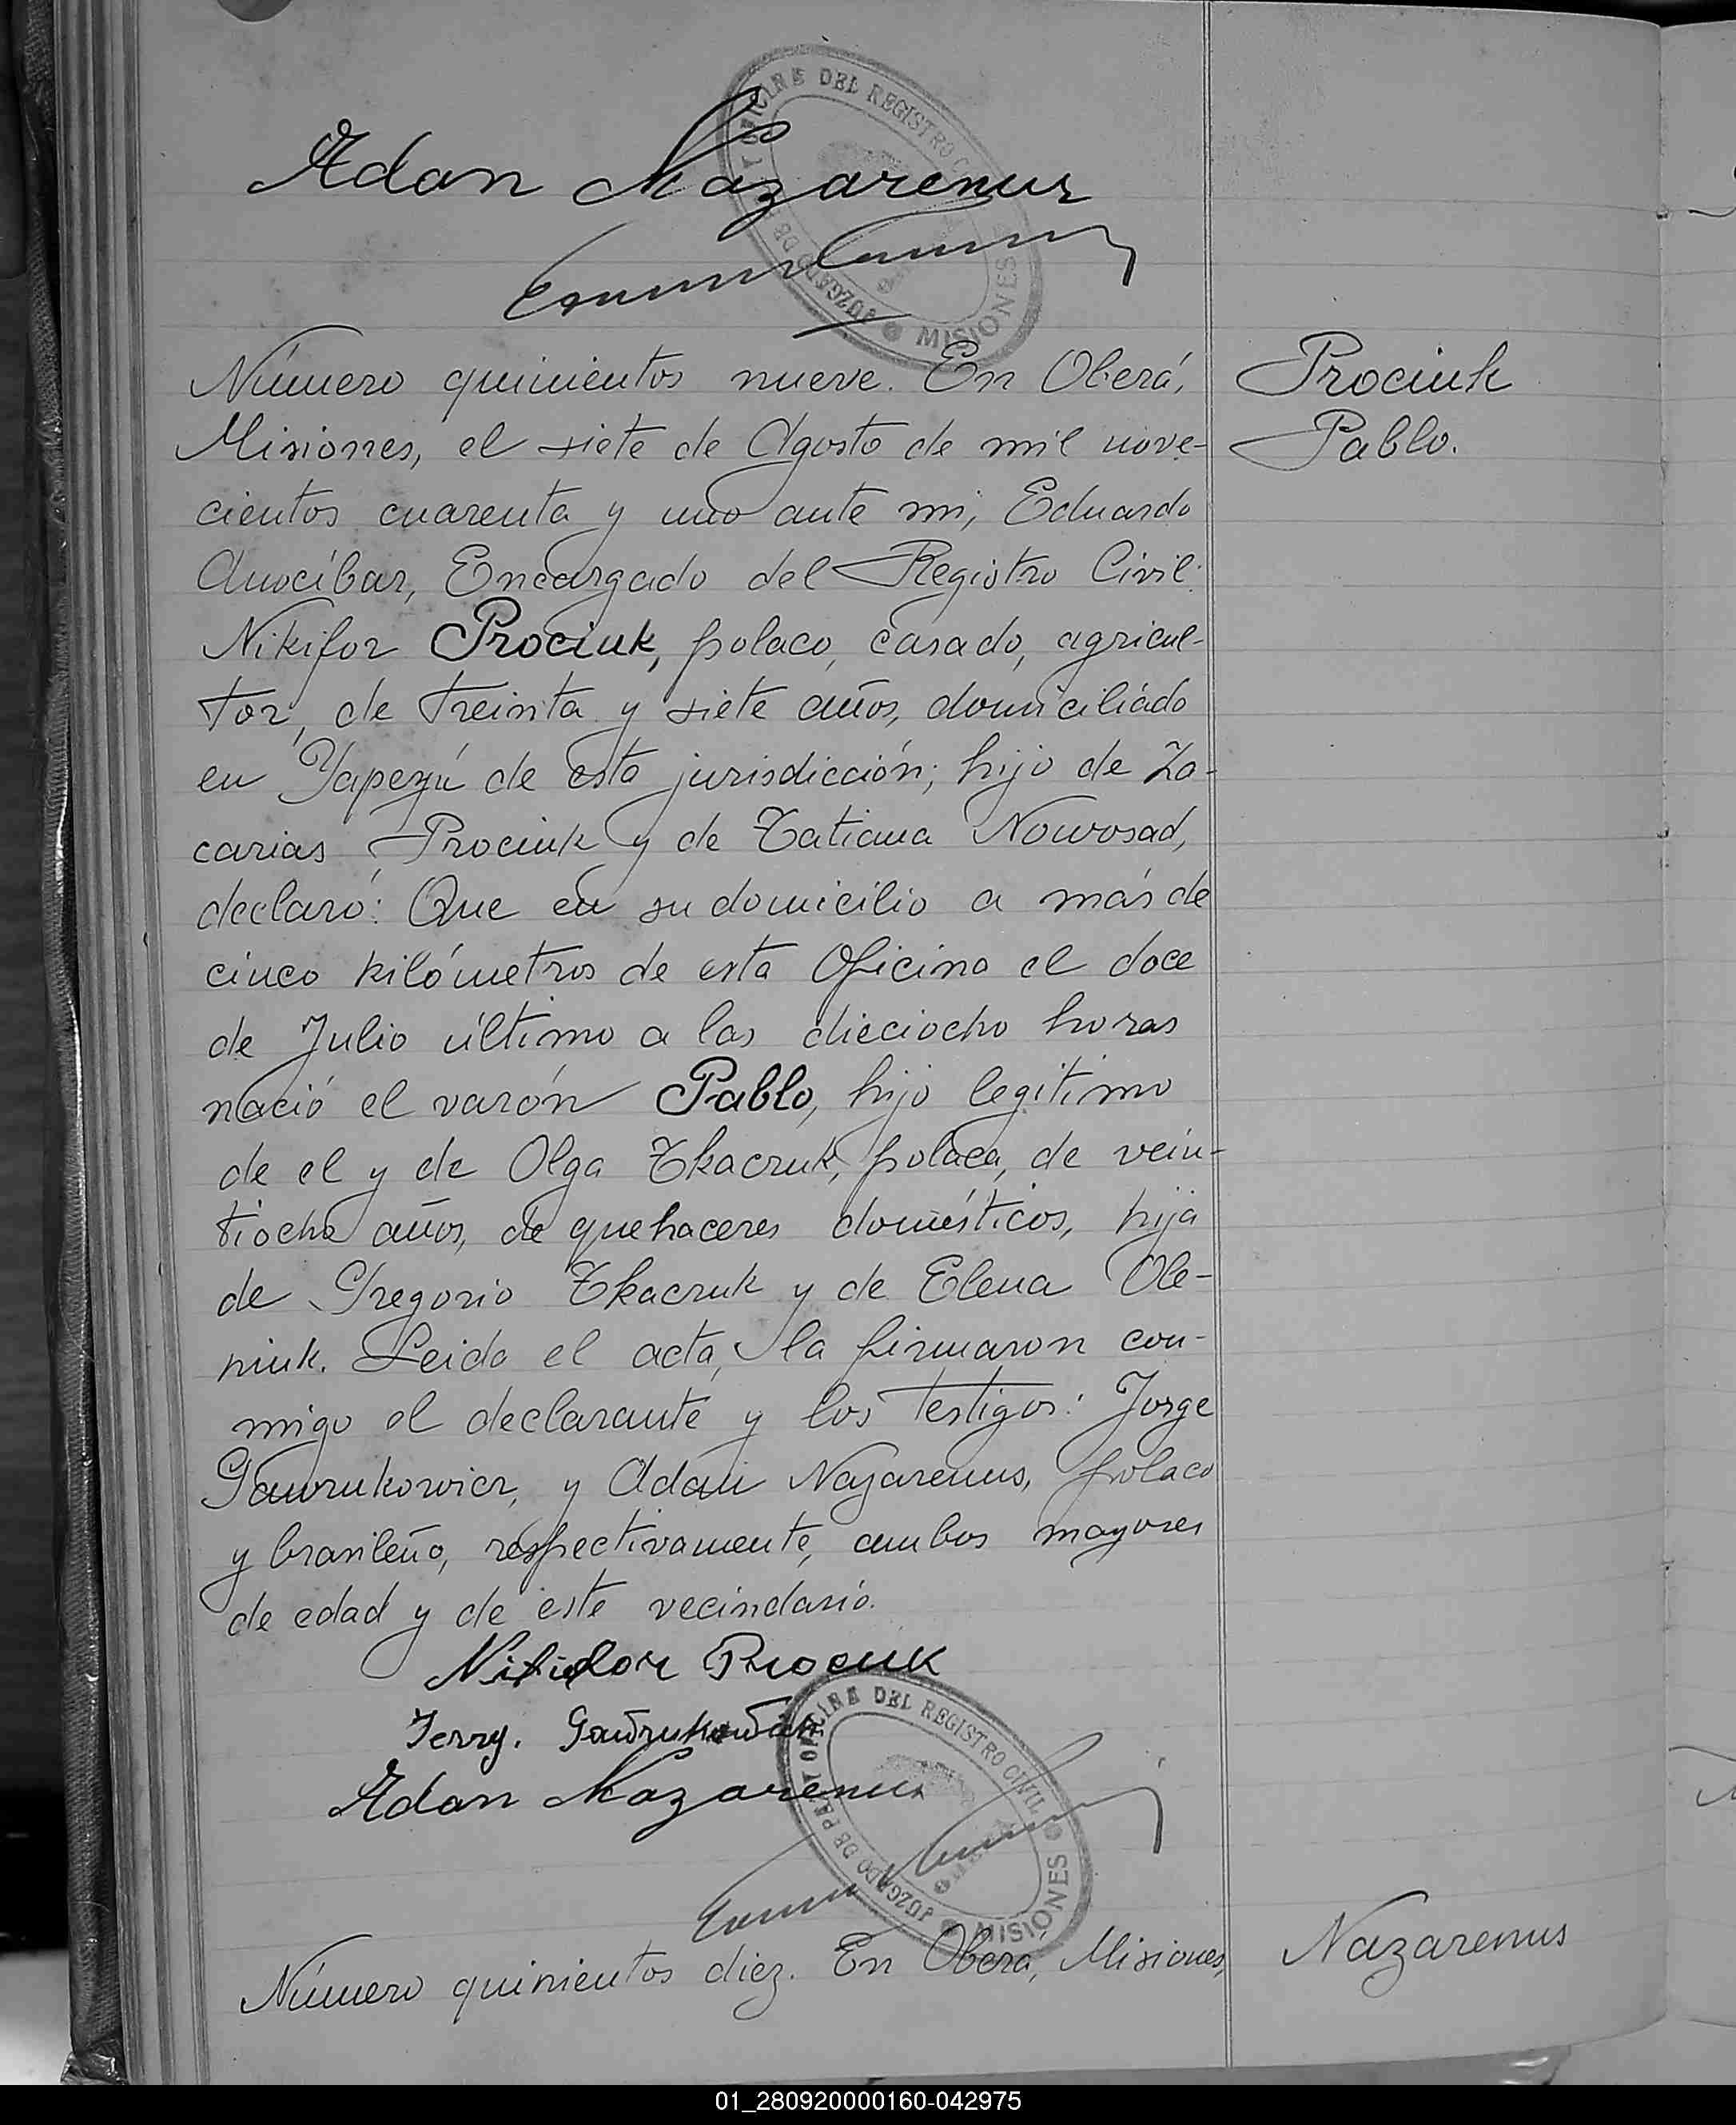 Adan Nazarenus
JUZGADO DE PAZ Y OFICINA DEL REGISTRO CIVIL
MISIONES
Número quinientos nueve. En Oberá,
Misiones, el siete de Agosto de mil nove-
cientos cuarenta y uno ante mi, Eduardo
Anocíbar, Encargado del Registro Civil.
Nikifor Prociuk, polaco, casado, agricul-
tor, de treinta y siete años, domiciliado
en Yapeyú de esta jurisdicción; hijo de Za-
carias Prociuk y de Tatiana Nowosad,
declaró: Que en su domicilio a más de
cinco kilómetros de esta Oficina el doce
de Julio último a las dieciocho horas
nació el varón Pablo, hijo legitimo
de el y de Olga Tkaczuk, polaca, de vein-
tiocho años, de quehaceres domésticos, hija
de Gregorio Tkaczuk y de Elena Ole-
niuk. Leida el acta, la firmaron con-
migo el declarante y los testigos: Jorge
Gawrukowicz, y Adan Nazarenus, polaco
y brasileño, respectivamente, ambos mayores
de edad y de este vecindario.
Prociuk
Pablo.
Nikifor Prociuk
Jerzy. Gawrukowicz
Adan Nazarenus
JUZGADO DE PAZ Y OFICINA DEL REGISTRO CIVIL
MISIONES
Número quinientos diez. En Oberá, Misiones,
Nazarenus
01_280920000160-042975